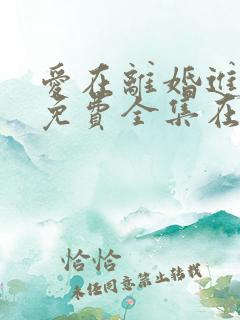 愛在離婚進
免費全集在
恰恰
未经同意禁止转载